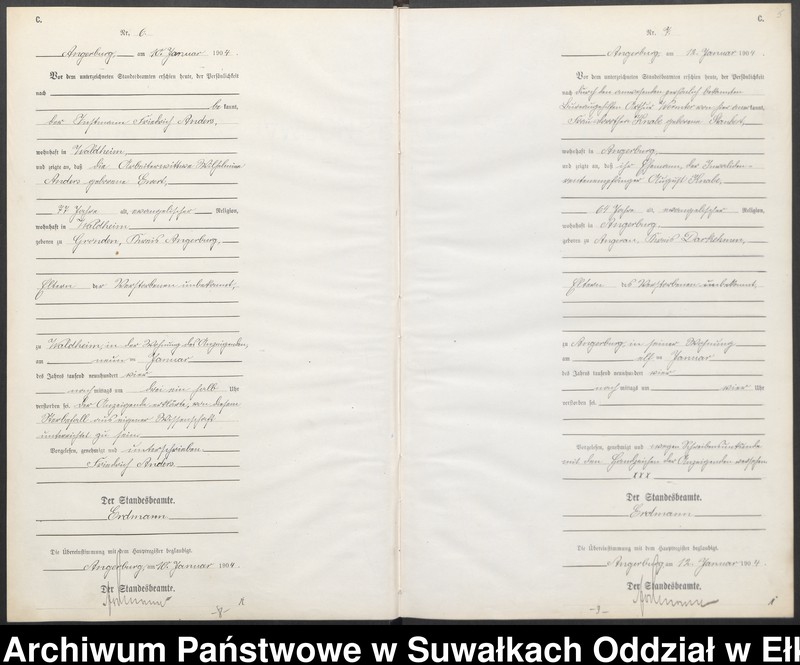 C.
Nr. 6
Angerburg, am 10. Januar 1904.
Vor dem unterzeichneten Standesbeamten erschien heute, der Persönlichkeit
nach
bekannt,
der Friedrich Anders,
wohnhaft in Waldheim,
und zeigte an, daß die Arbeiterwittwe Wilhelmine
Anders geborene
77 Jahre alt, evangelischer Religion,
wohnhaft in Waldheim
geboren zu Gronden, Kreis Angerburg,
Eltern der Verstorbenen unbekannt,
zu Waldheim, in der Wohnung des Anzeigenden,
am neun ten Januar
des Jahres tausend neunhundert vier
nach mittags um ein halb Uhr
verstorben sei. Der Anzeigende erklärte, von diesem
Sterbefall aus eigener Wissenschaft
unterrichtet zu sein.
Vorgelesen, genehmigt und unterschrieben
Friedrich Anders
Der Standesbeamte.
Erdmann
Die Übereinstimmung mit dem Hauptregister beglaubigt.
Angerburg, am 10. Januar 1904.
Der Standesbeamte.
C.
5
Nr. 7
Angerburg, am 12. Januar 1904.
Vor dem unterzeichneten Standesbeamten erschien heute, der Persönlichkeit
nach durch den anwesenden persönlich bekannten
Bureaugehilfen Arthur anerkannt,
Frau Dorothea Knabe geborene
wohnhaft in Angerburg,
und zeigte an, daß ihr Ehemann, der Invaliden-
rentenempfänger August Knabe,
Jahre a. evangelischer Religion,
wohnhaft in Angerburg
geboren zu Angerau, Kreis Darkehmen,
Eltern des Verstorbenen unbekannt,
zu Angerburg, in seiner Wohnung
am elf ten Januar
des Jahres tausend neunhundert vier
nach mittags um vier Uhr
verstorben sei.
Vorgelesen, genehmigt und wegen Schreibensunkunde
mit den Handzeichen der Anzeigenden versehen
XXX
Der Standesbeamte.
Erdmann
Die Übereinstimmung mit dem Hauptregister beglaubigt.
Angerburg, am 12. Januar 1904.
Der Standesbeamte.
Archiwum Państwowe w Suwałkach Oddział w Ełk